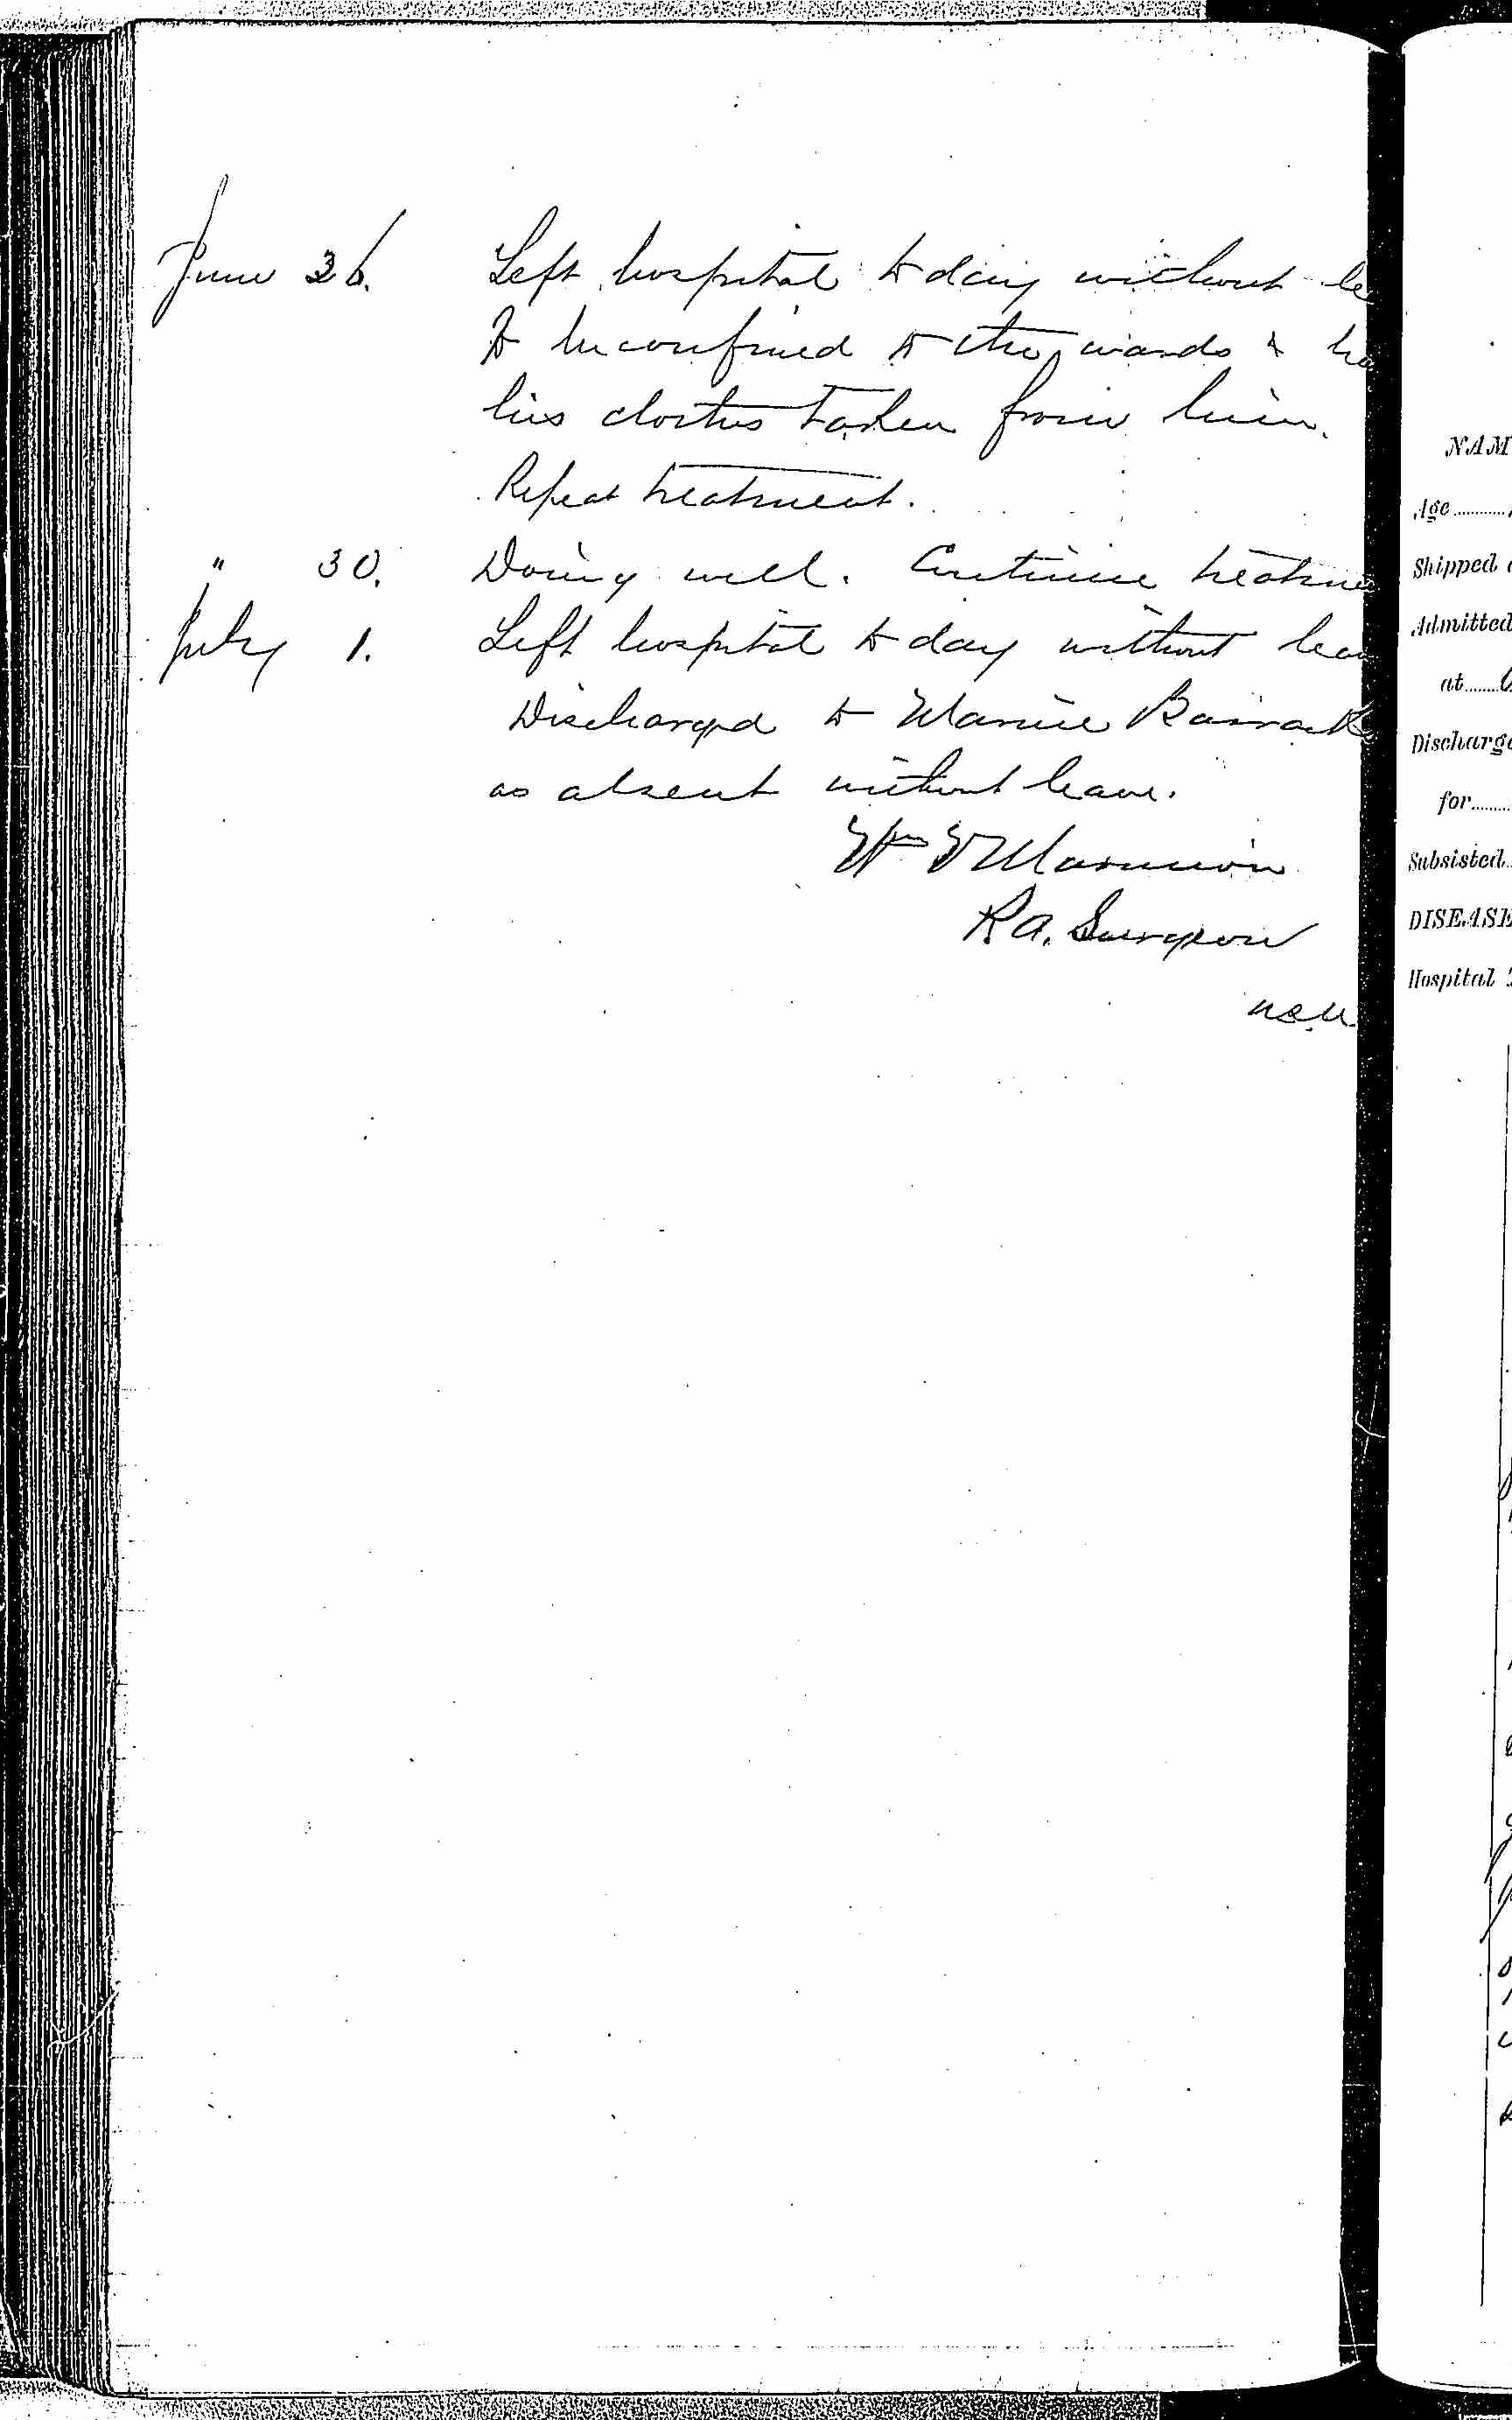 June 26. Left hospital to day without le
To be confined to the wards & ha
his clothes taken from him.
Repeat treatment.
" 30. Doing well. Continue treatme
July 1. Left hospital to day without leav
Discharged to Marine Barracks
as absent without leave.
Wm
P. A. Surgeon
U.S.N.
NAM
Age
Shipped
Admitted
at
Discharge
for
Subsisted
DISEASE
Hospital